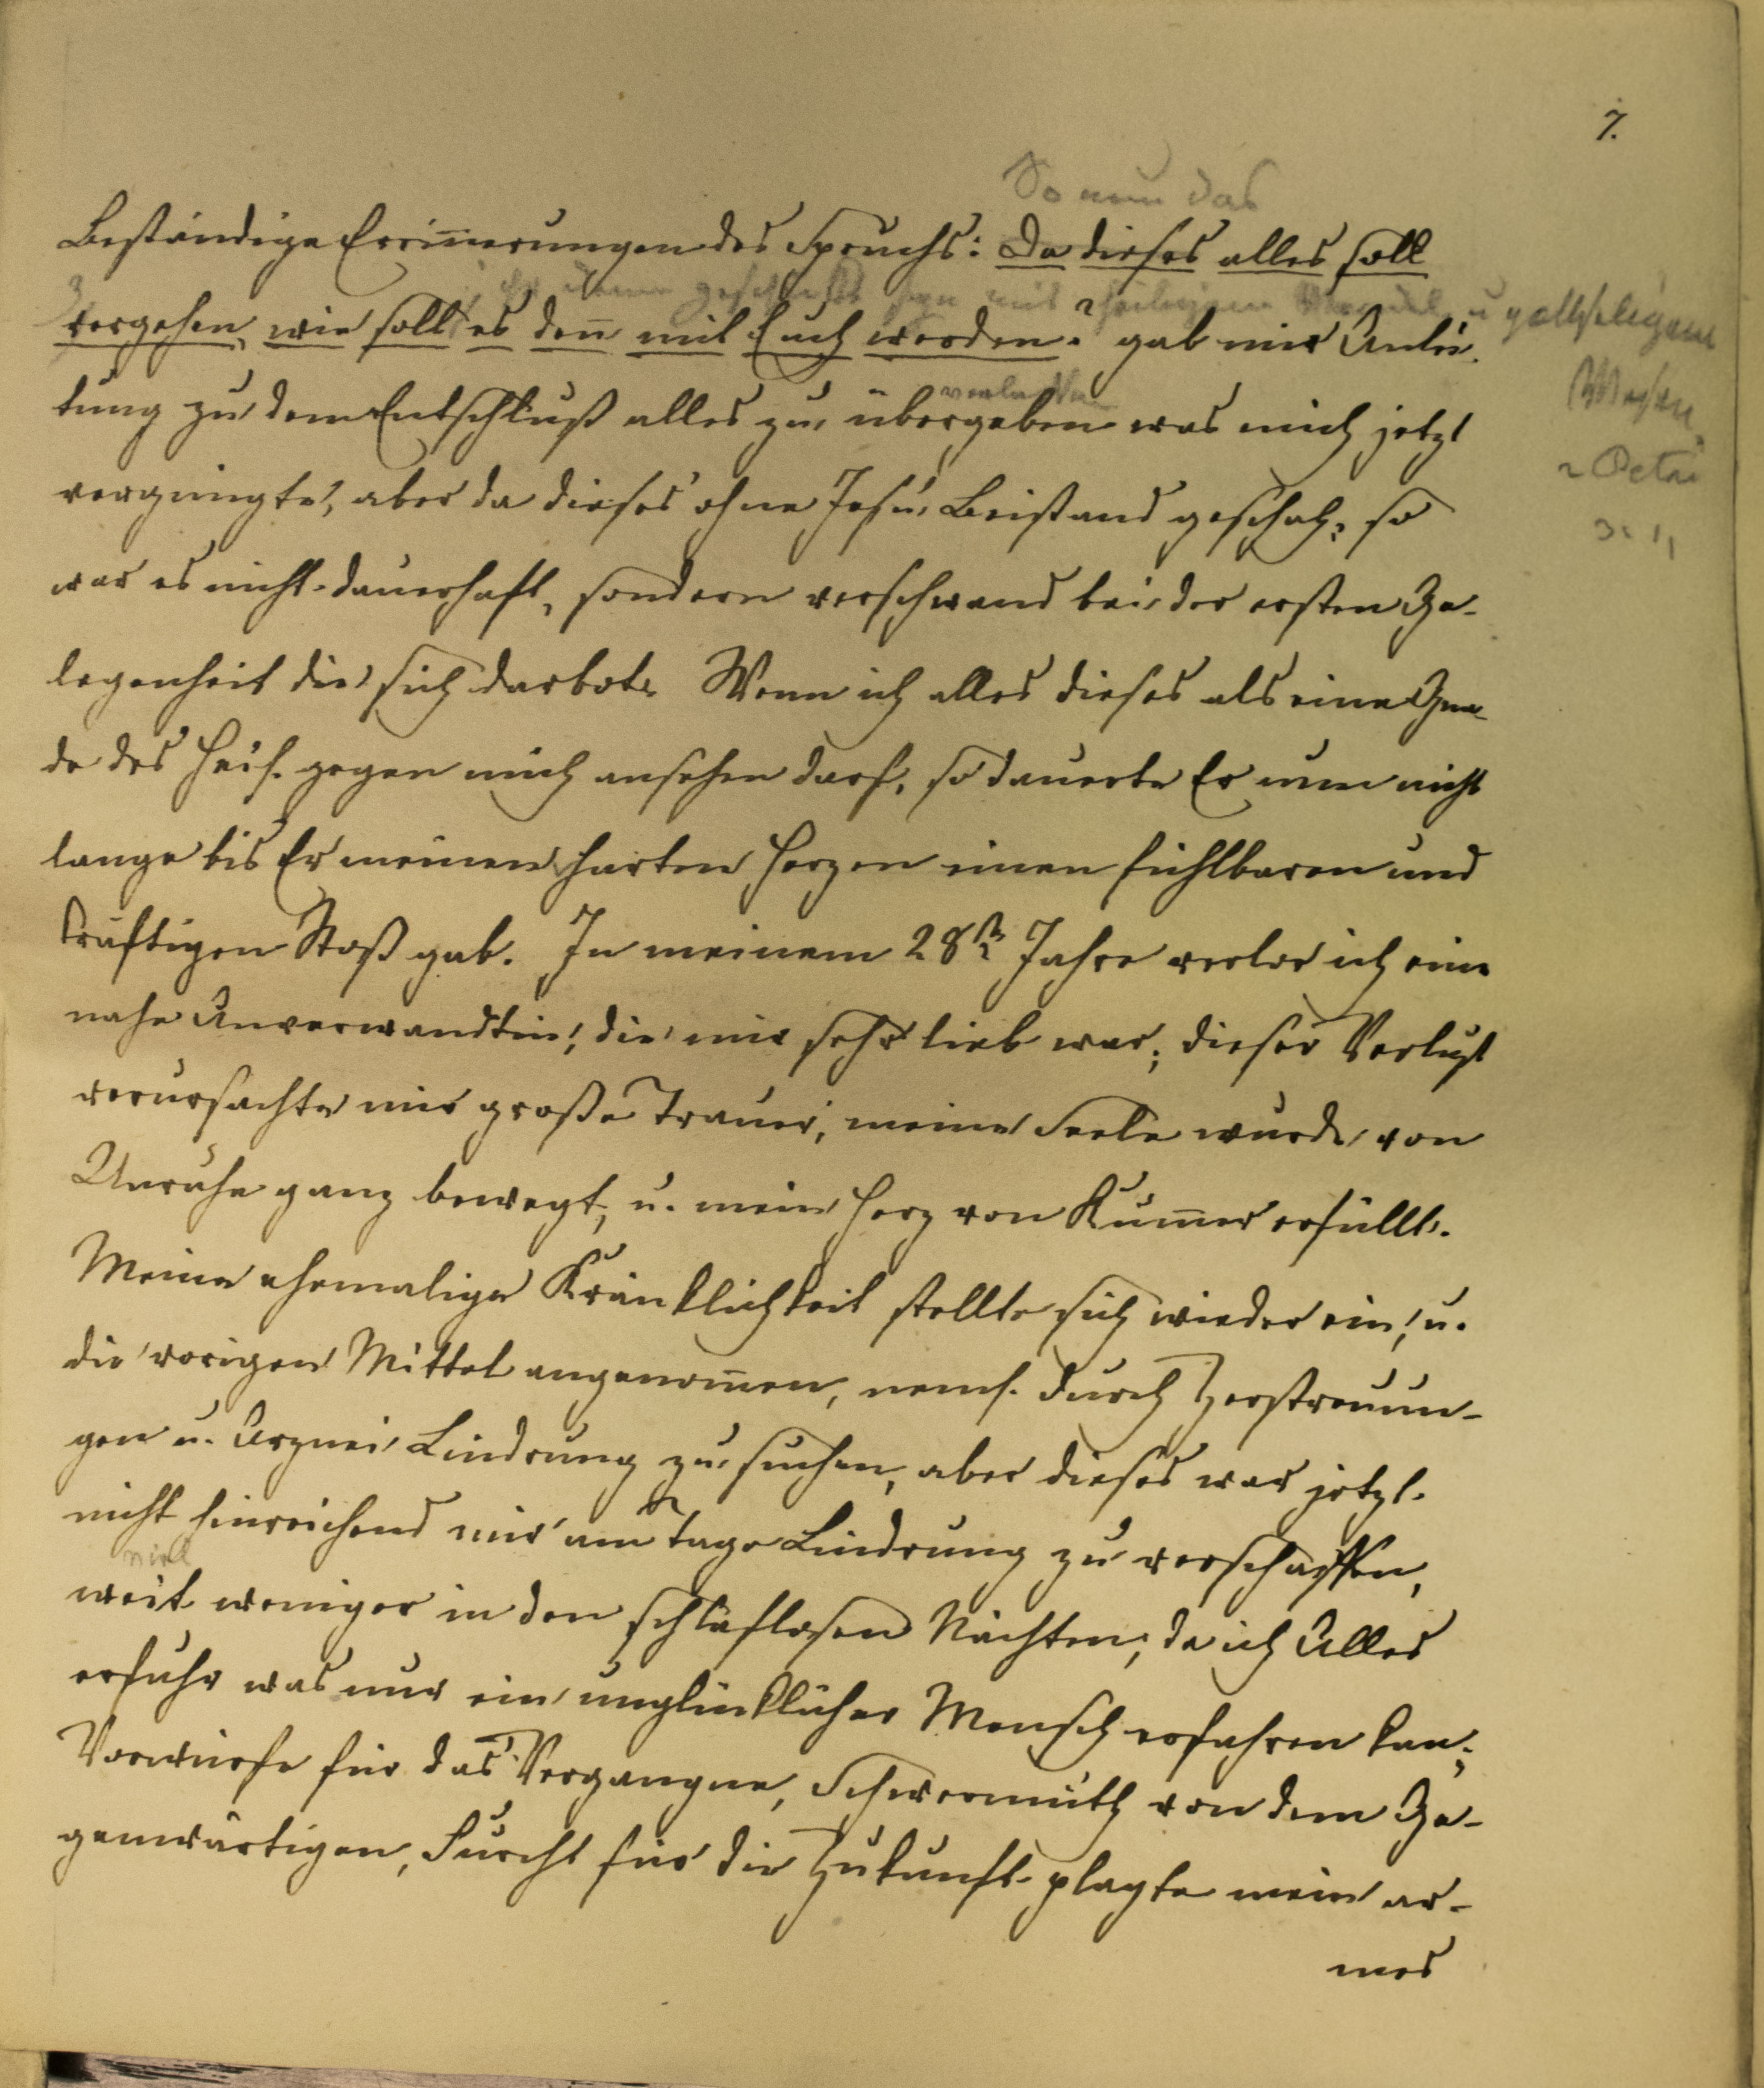 7.
So nun das
Beständige Erin̄erungen des Spruchs: Da dieses alles soll
ihr denn geschickt seyn mit heiligem Wandel u gottseligem
vergehen, wie soll es den̄ mit Euch werden? gab mir Anlei-
Wesen
verlassen
tung zu dem Entschluß alles zu übergeben was mich jetzt
2 Petri
vergnügte, aber da dieses ohne Jesu Beistand geschah, so
3: 11
war es nicht dauerhaft, sondern verschwand bei der ersten Ge-
legenheit die sich darbot. Wenn ich alles dieses als eine Gna-
de des Heil. gegen mich ansehen darf, so dauerte Er nun nicht
lange bis Er meinen harten Herzen einen fühlbaren und
kräftigen Stoß gab. In meinem 28st Jahre verlor ich eine
nahe Anverwandtin, die mir sehr lieb war; dieser Verlust
verursachte mir große Trauer, meine Seele wurde von
Unruhe ganz bewegt, u. mein Herz von Kum̄er erfüllt.
Meine ehemalige Kränklichkeit stellte sich wieder ein, u.
die vorigen Mittel angenom̄en, neml. durch Zerstreuun-
gen u. Arznei Lindrung zu suchen, aber dieses war jetzt
nicht hinreichend mir am Tage Lindrung zu verschaffen,
viel
weit weniger in den schlaflosen Nächten, da ich Alles
erfuhr was nur ein unglücklicher Mensch erfahren kan;
Vorwürfe für das Vergangne, Schwermuth von dem Ge-
genwärtigen, Furcht für die Zukunft plagte mein ar-
mes